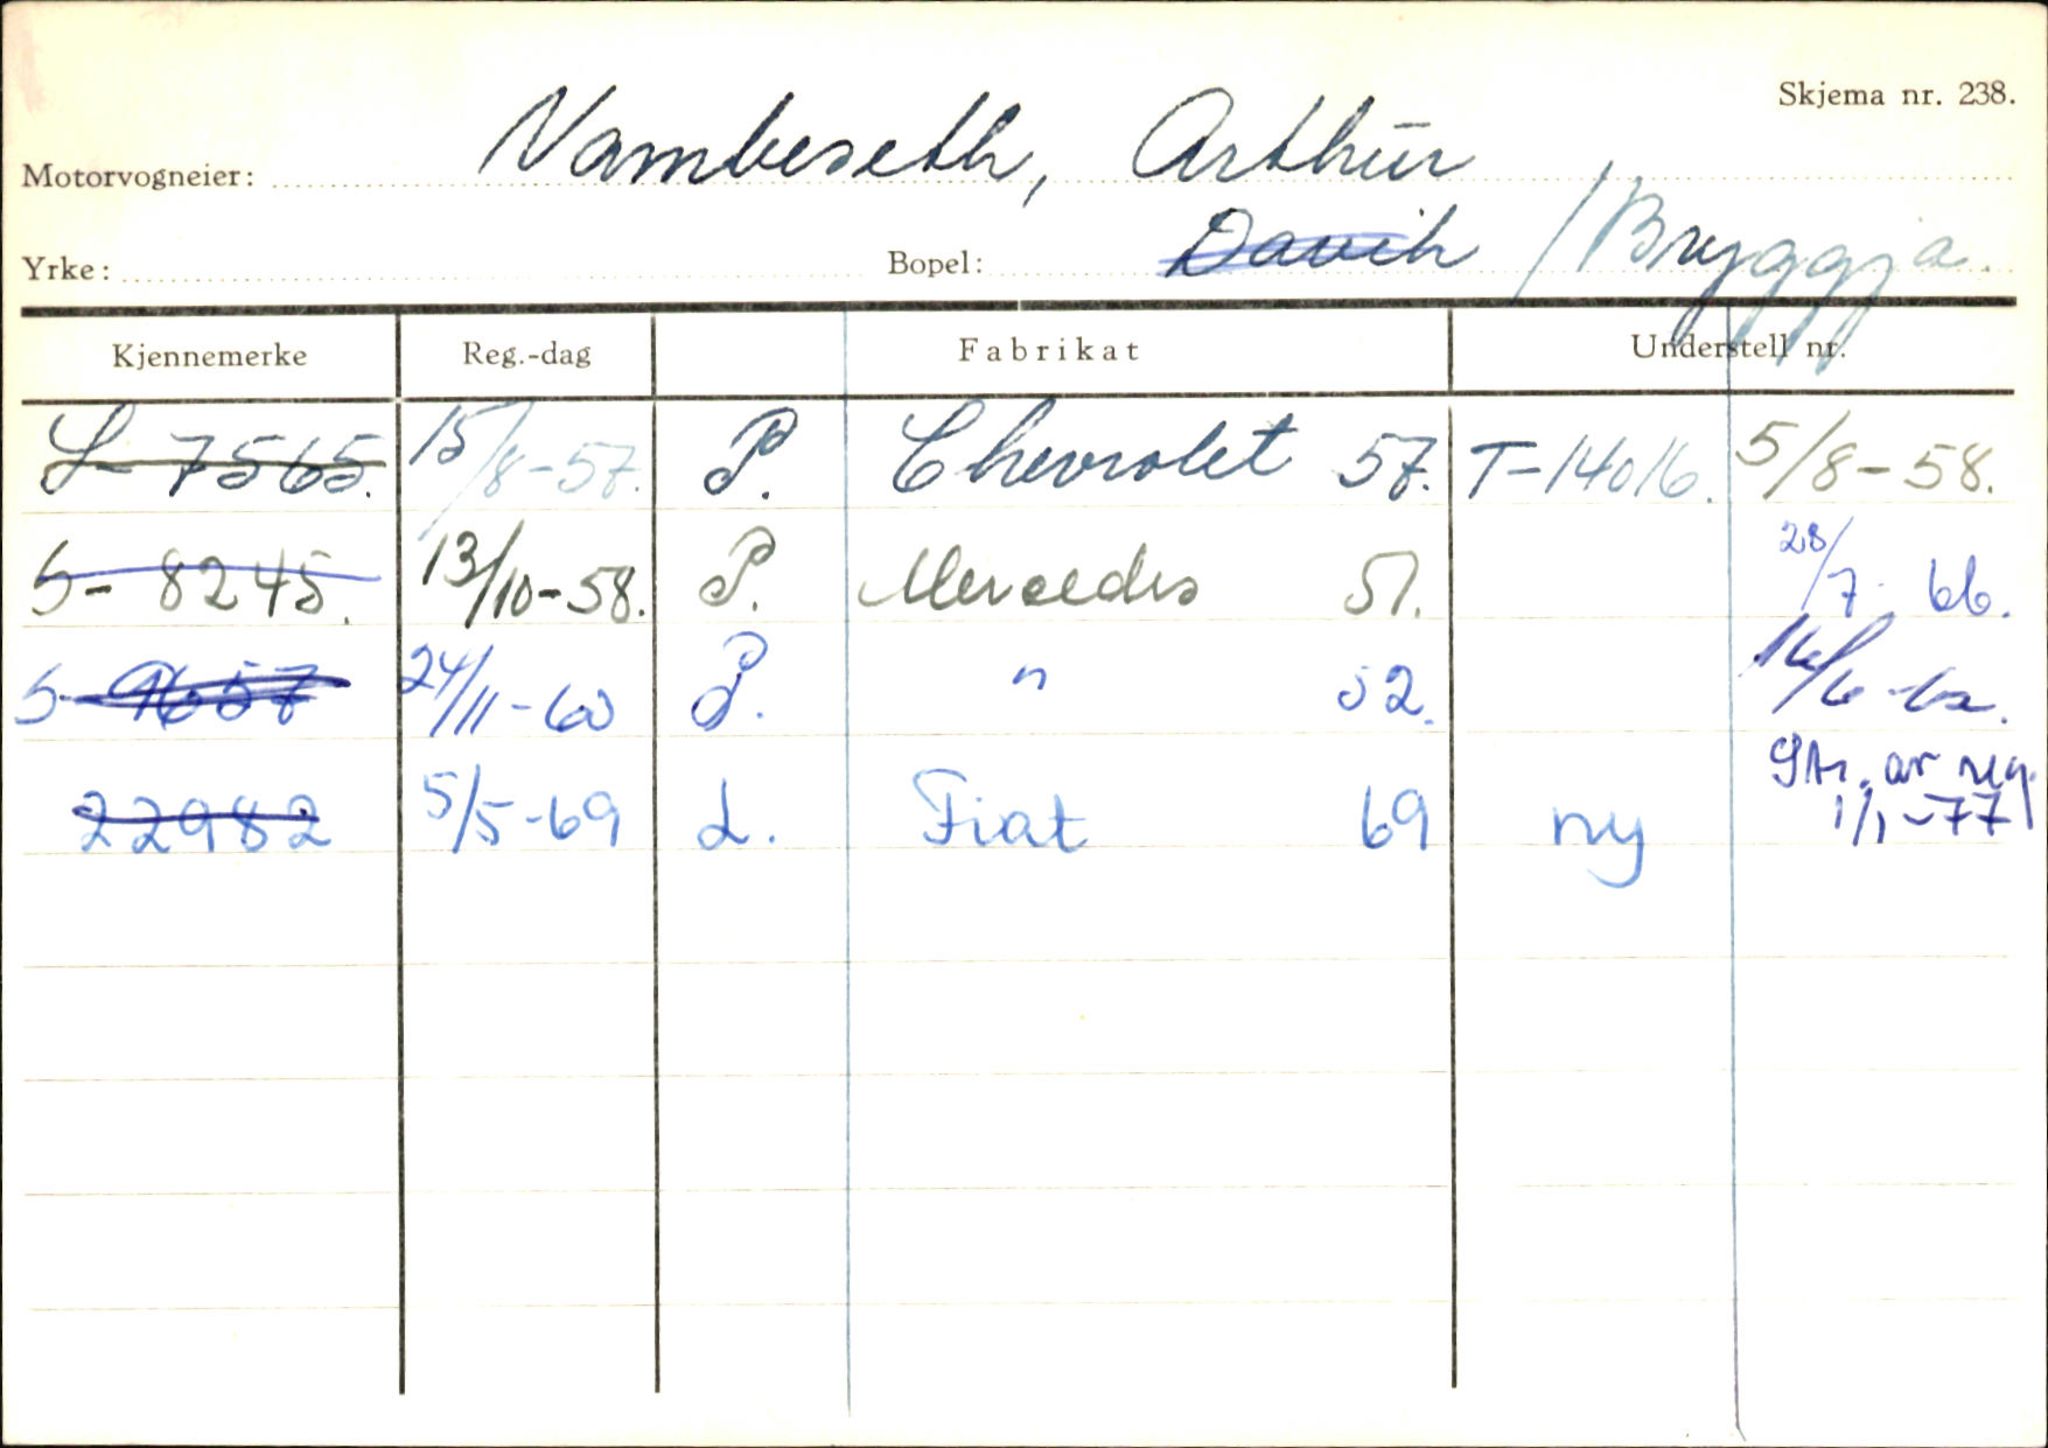 Skjema nr. 238.
Motorvogneier: Nambeseth, Arthur
Yrke: Bopel: Davik / Bryggja.
Kjennemerke Reg.-dag Fabrikat Understell nr.
S-7565. 15/8-57. P. Chevrolet 57. T-14016. 5/8-58.
S-8245. 13/10-58. P. Mercedes 51. 28/7-66.
S-9657 24/11-60 P. " 52. 16/6-62.
Str. av reg.
22982 5/5-69 L. Fiat 69 ny 1/1-77